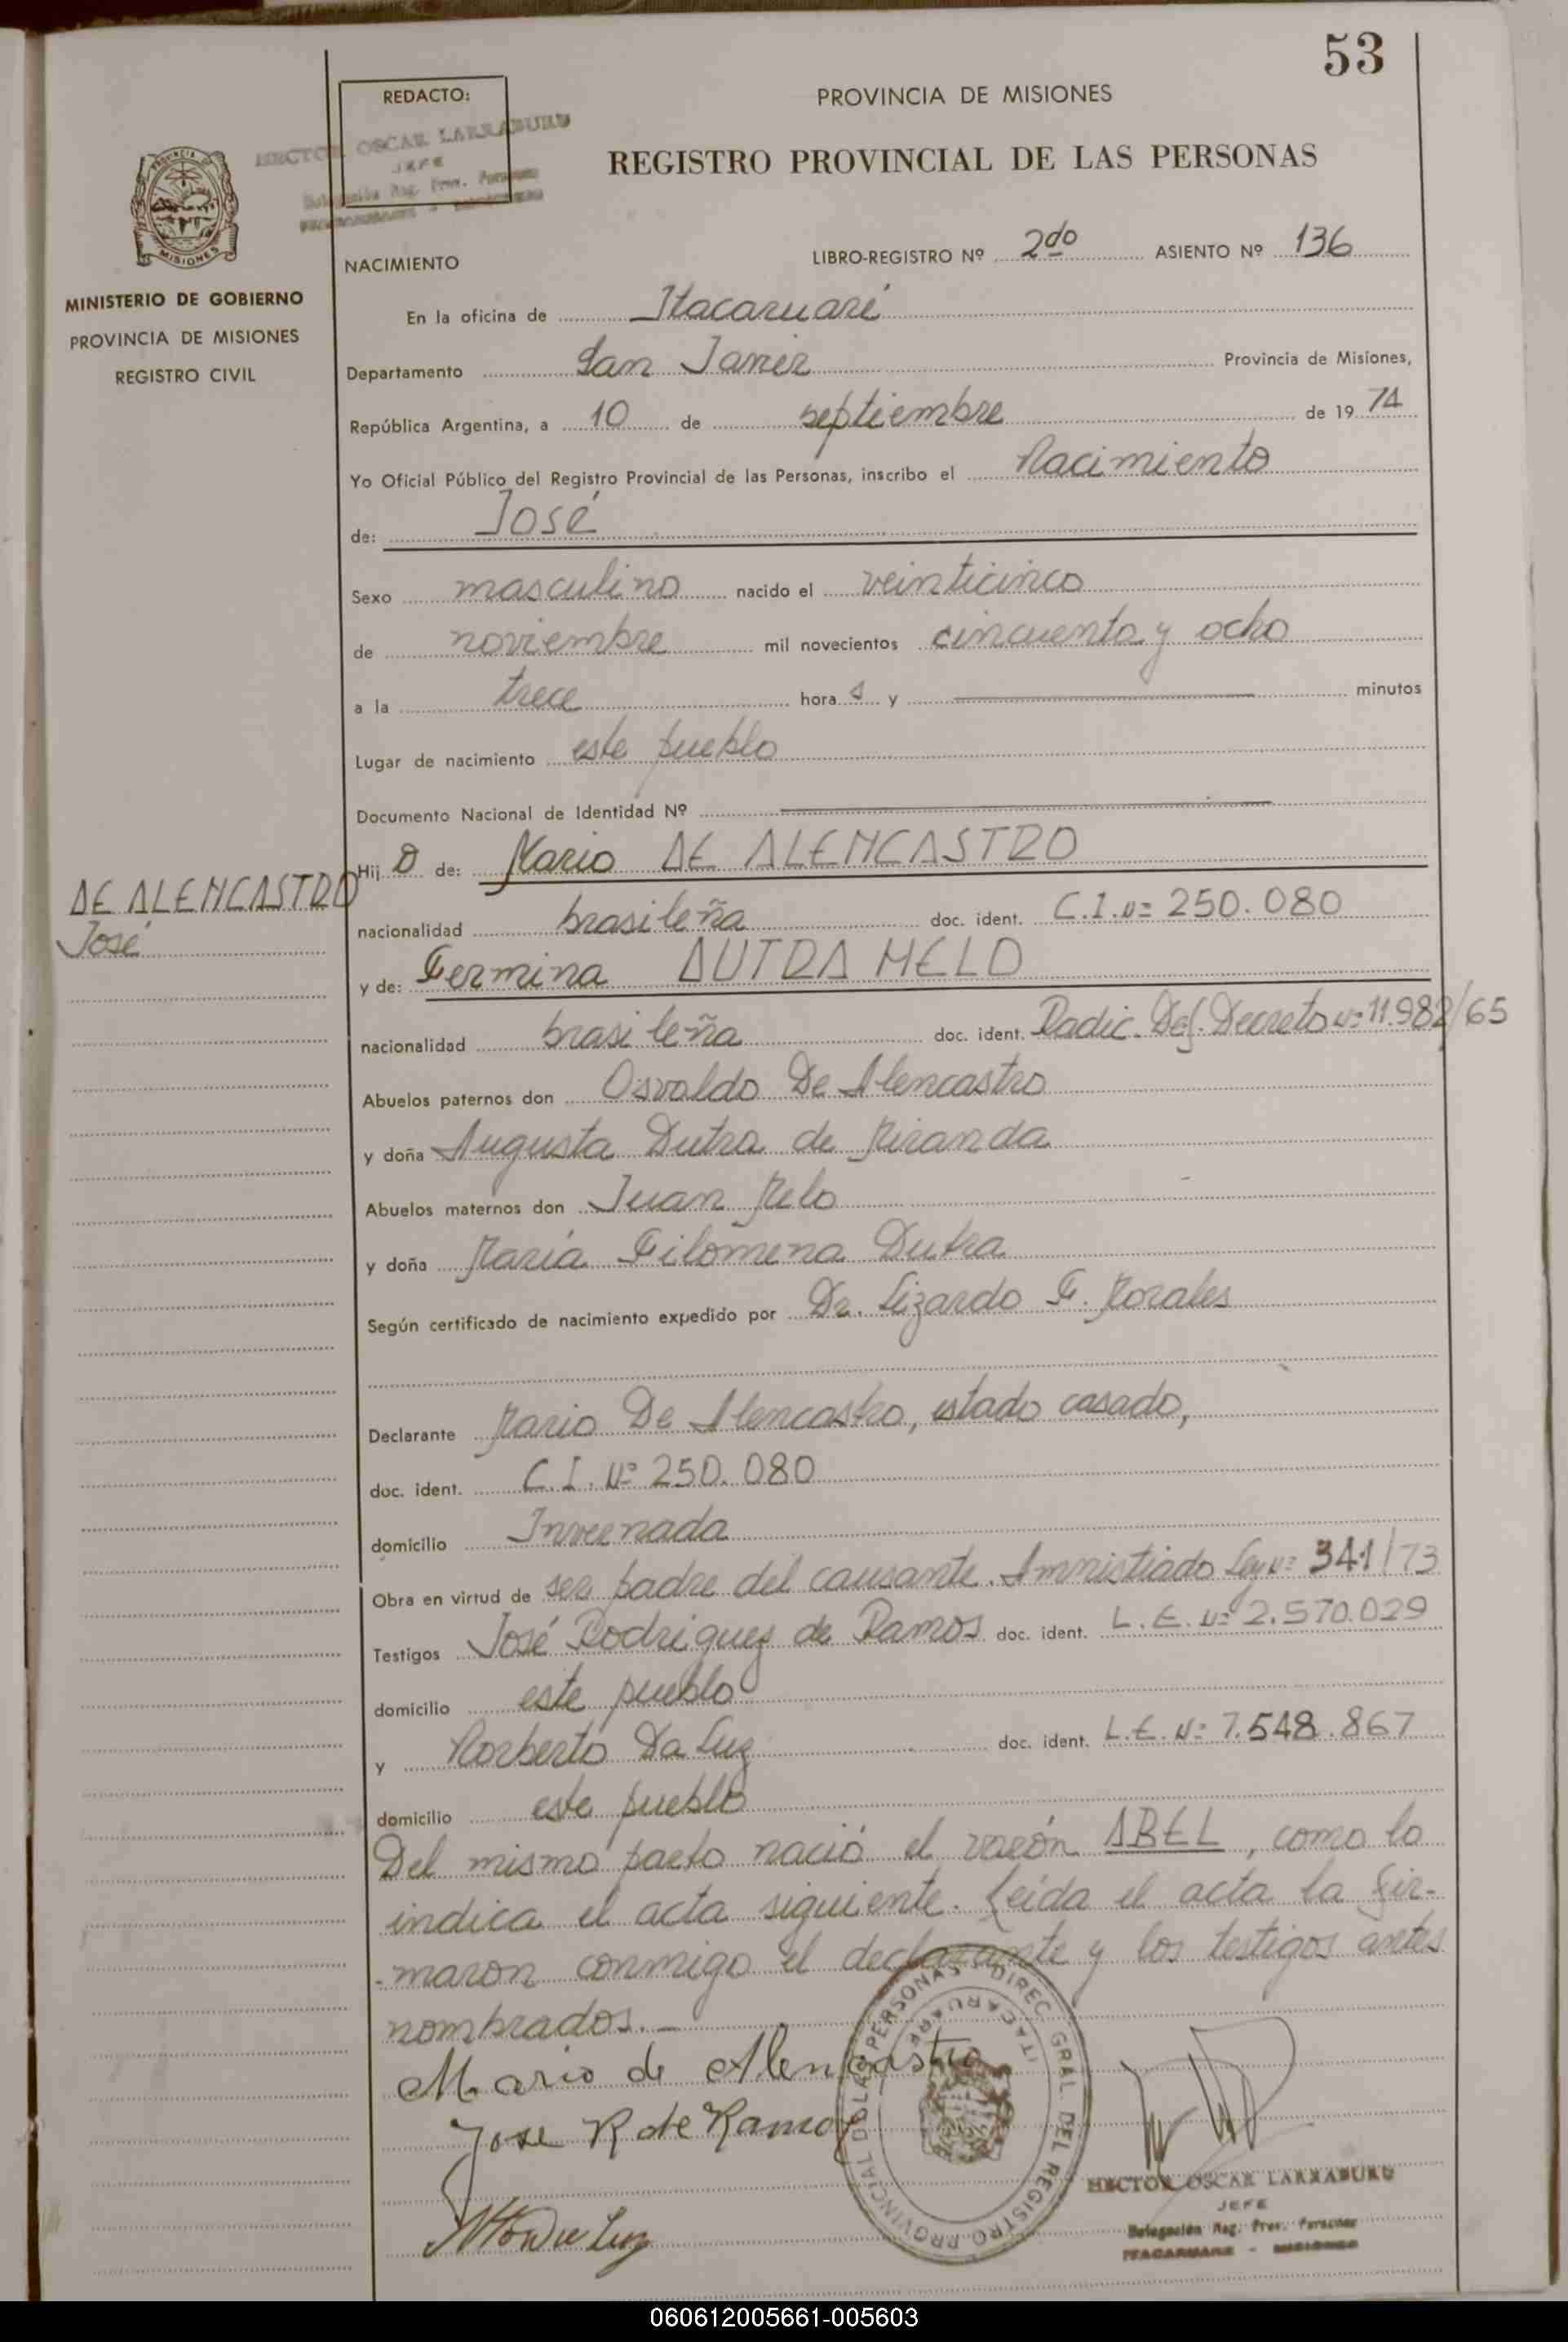 53
REDACTO:
HECTOR OSCAR LARRABURU
JEFE
PROVINCIA DE MISIONES
REGISTRO PROVINCIAL DE LAS PERSONAS
MISIONES
MINISTERIO DE GOBIERNO
PROVINCIA DE MISIONES
REGISTRO CIVIL
NACIMIENTO LIBRO-REGISTRO Nº 2do ASIENTO Nº 136
En la oficina de Itacaruaré
Departamento San Javier Provincia de Misiones,
República Argentina, a 10 de septiembre de 19 74
Yo Oficial Público del Registro Provincial de las Personas, inscribo el Nacimiento
de: José
Sexo masculino nacido el veinticinco
de noviembre mil novecientos cincuenta y ocho
a la trece hora s y minutos
Lugar de nacimiento este pueblo
Documento Nacional de Identidad Nº
Hij o de: Mario DE ALENCASTRO
DE ALENCASTRO
José
nacionalidad brasileña doc. ident. C.I. Nº 250.080
y de: Fermina DUTRA MELO
nacionalidad brasileña doc. ident. Radic. Def. Decreto Nº 11.982/65
Abuelos paternos don Osvaldo De Alencastro
y doña Augusta Dutra de Miranda
Abuelos maternos don Juan Melo
y doña María Filomena Dutra
Según certificado de nacimiento expedido por Dr. Lizardo F. Morales
Declarante Mario De Alencastro, estado casado,
doc. ident. C.I. Nº 250.080
domicilio Invernada
Obra en virtud de ser padre del causante. Amnistiado Ley Nº 341/73
Testigos José Rodriguez de Ramos doc. ident. L.E. Nº 2.570.029
domicilio este pueblo
y Norberto Da Luz doc. ident. L.E. Nº 7.548.867
domicilio este pueblo
Del mismo parto nació el varón ABEL, como lo
indica el acta siguiente. Leída el acta la fir-
-maron conmigo el declarante y los testigos antes
nombrados.-
Mario de Alencastro
Jose R de Ramos
DIREC. GRAL. DEL REGISTRO PROVINCIAL DE LAS PERSONAS
ITACARUARE
HECTOR OSCAR LARRABURU
JEFE
Delegación Reg. Prov. Personas
ITACARUARE - MISIONES
060612005661-005603